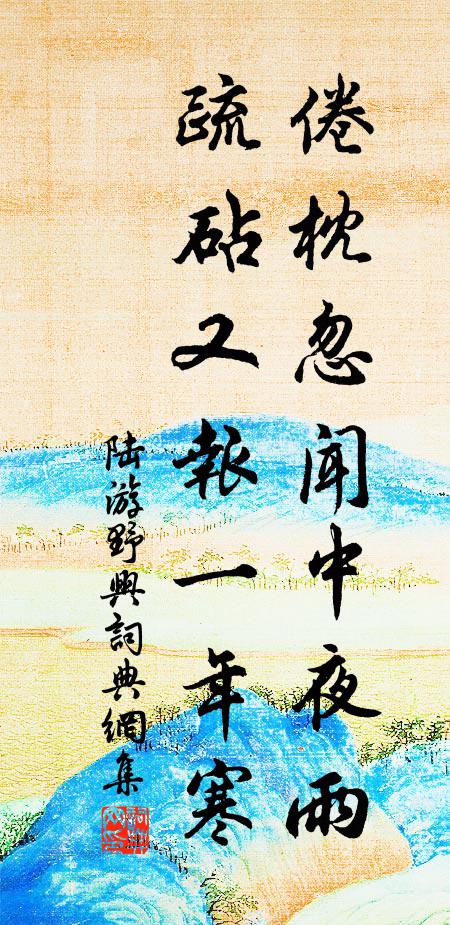 倦枕忽闻中夜雨
疏砧又報一年寒
陆游野興詞典網集